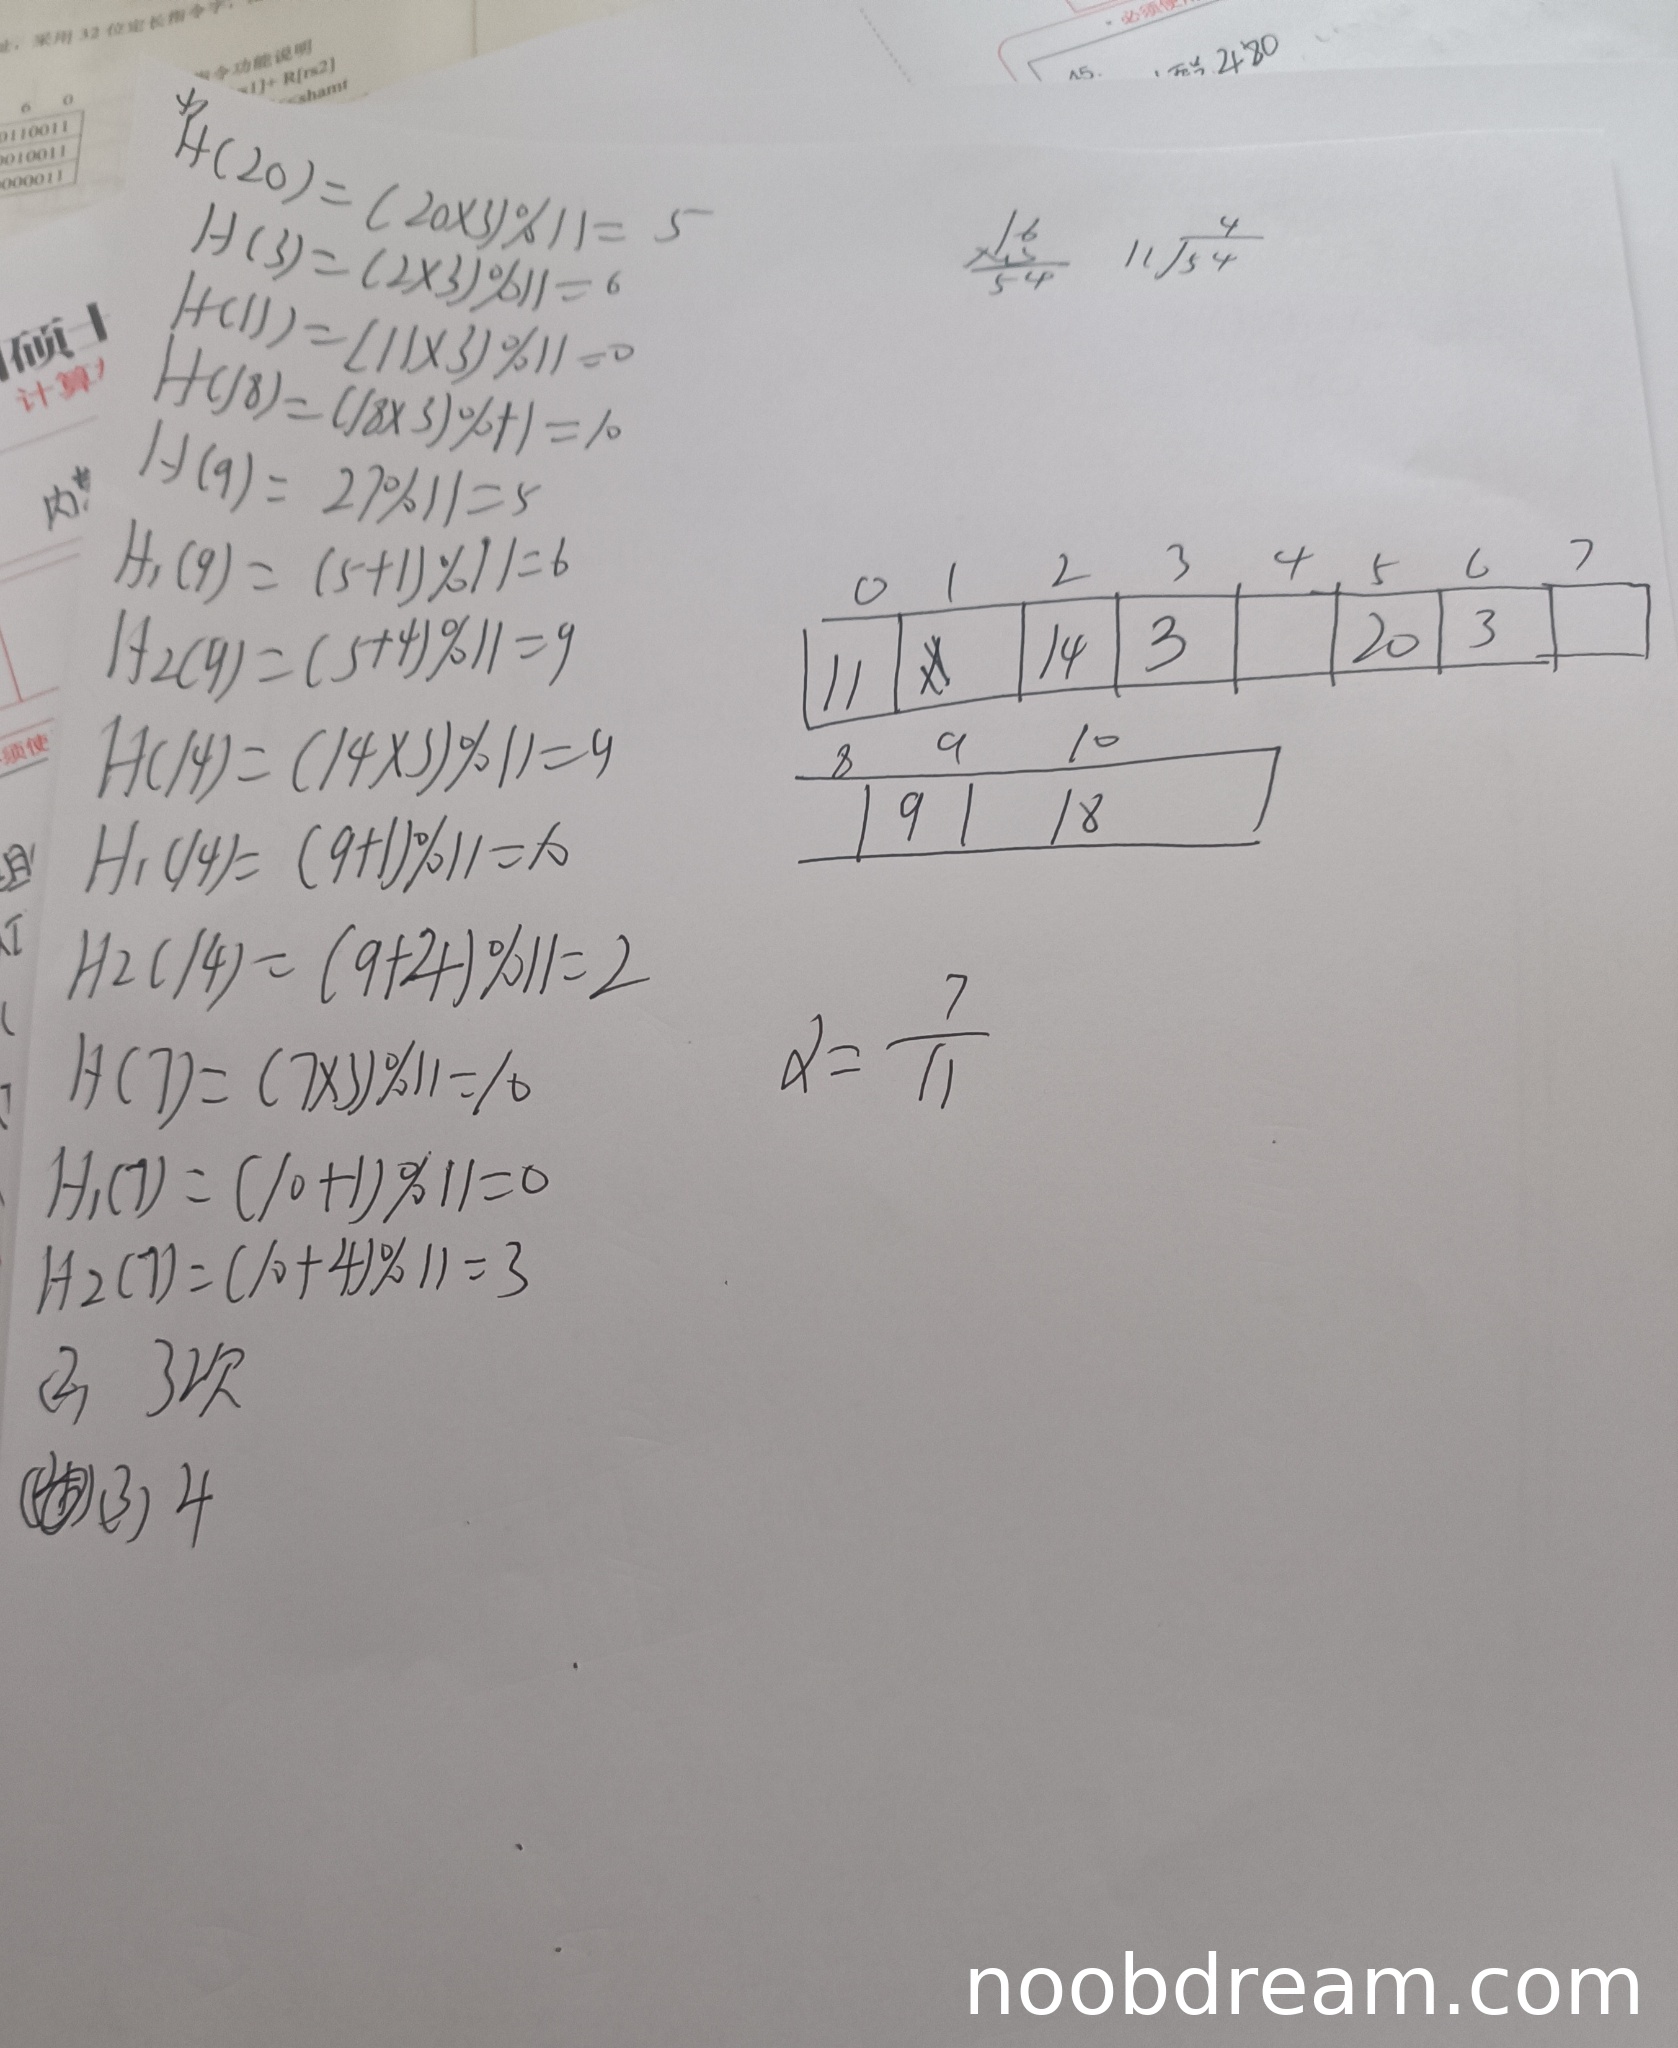 址，采用 32 位定长指令字，
指令功能说明
s1]+ R[rs2]
<shamt
6 0
0110011
0010011
000011
必须使
15.
2480
硕
计算
内
须使
H(20) = (20×3)%11 = 5
H(3) = (2×3)%11 = 6
H(11) = (11×3)%11 = 0
H(18) = (18×3)%11 = 10
H(9) = 27%11 = 5
H1(9) = (5+1)%11 = 6
H2(9) = (5+4)%11 = 9
H(14) = (14×3)%11 = 9
H1(14) = (9+1)%11 = 10
H2(14) = (9+4)%11 = 2
H(7) = (7×3)%11 = 10
H1(7) = (10+1)%11 = 0
H2(7) = (10+4)%11 = 3
(2) 3次
(3) 4
16
×3
54
4
11 54
0 1 2 3 4 5 6 7
11 14 3 20 3
8 9 10
9 18
α = 7/11
noobdream.com